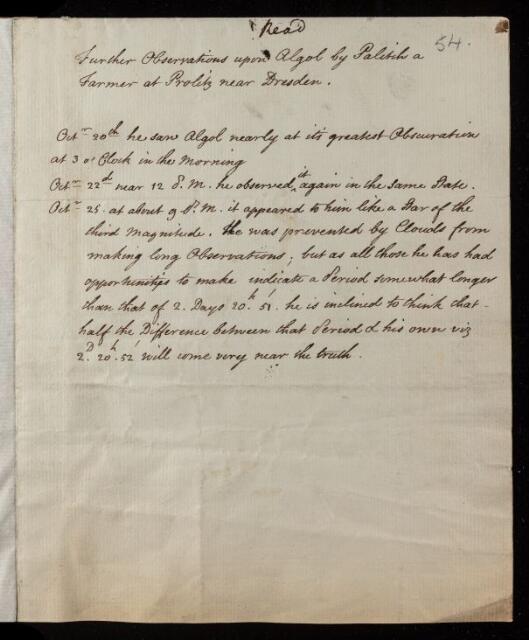 Read
54.
Further Observations upon Algol by Palitch a
Farmer at Prolitz near Dresden.
Octr 20th he saw Algol nearly at its greatest Obscuration
at 3 o'Clock in the Morning
Octr 22d near 12 P.M. he observed it again in the same State.
Octr 25. at about 9 P.M. it appeared to him like a Star of the
third Magnitude. He was prevented by Clouds from
making long Observations; but as all those he has had
opportunities to make indicate a Period somewhat longer
than that of 2. Days 20.h 51.' he is inclined to think that
half the Difference between that Period & his own viz
2.D 20.h 52' will come very near the truth.